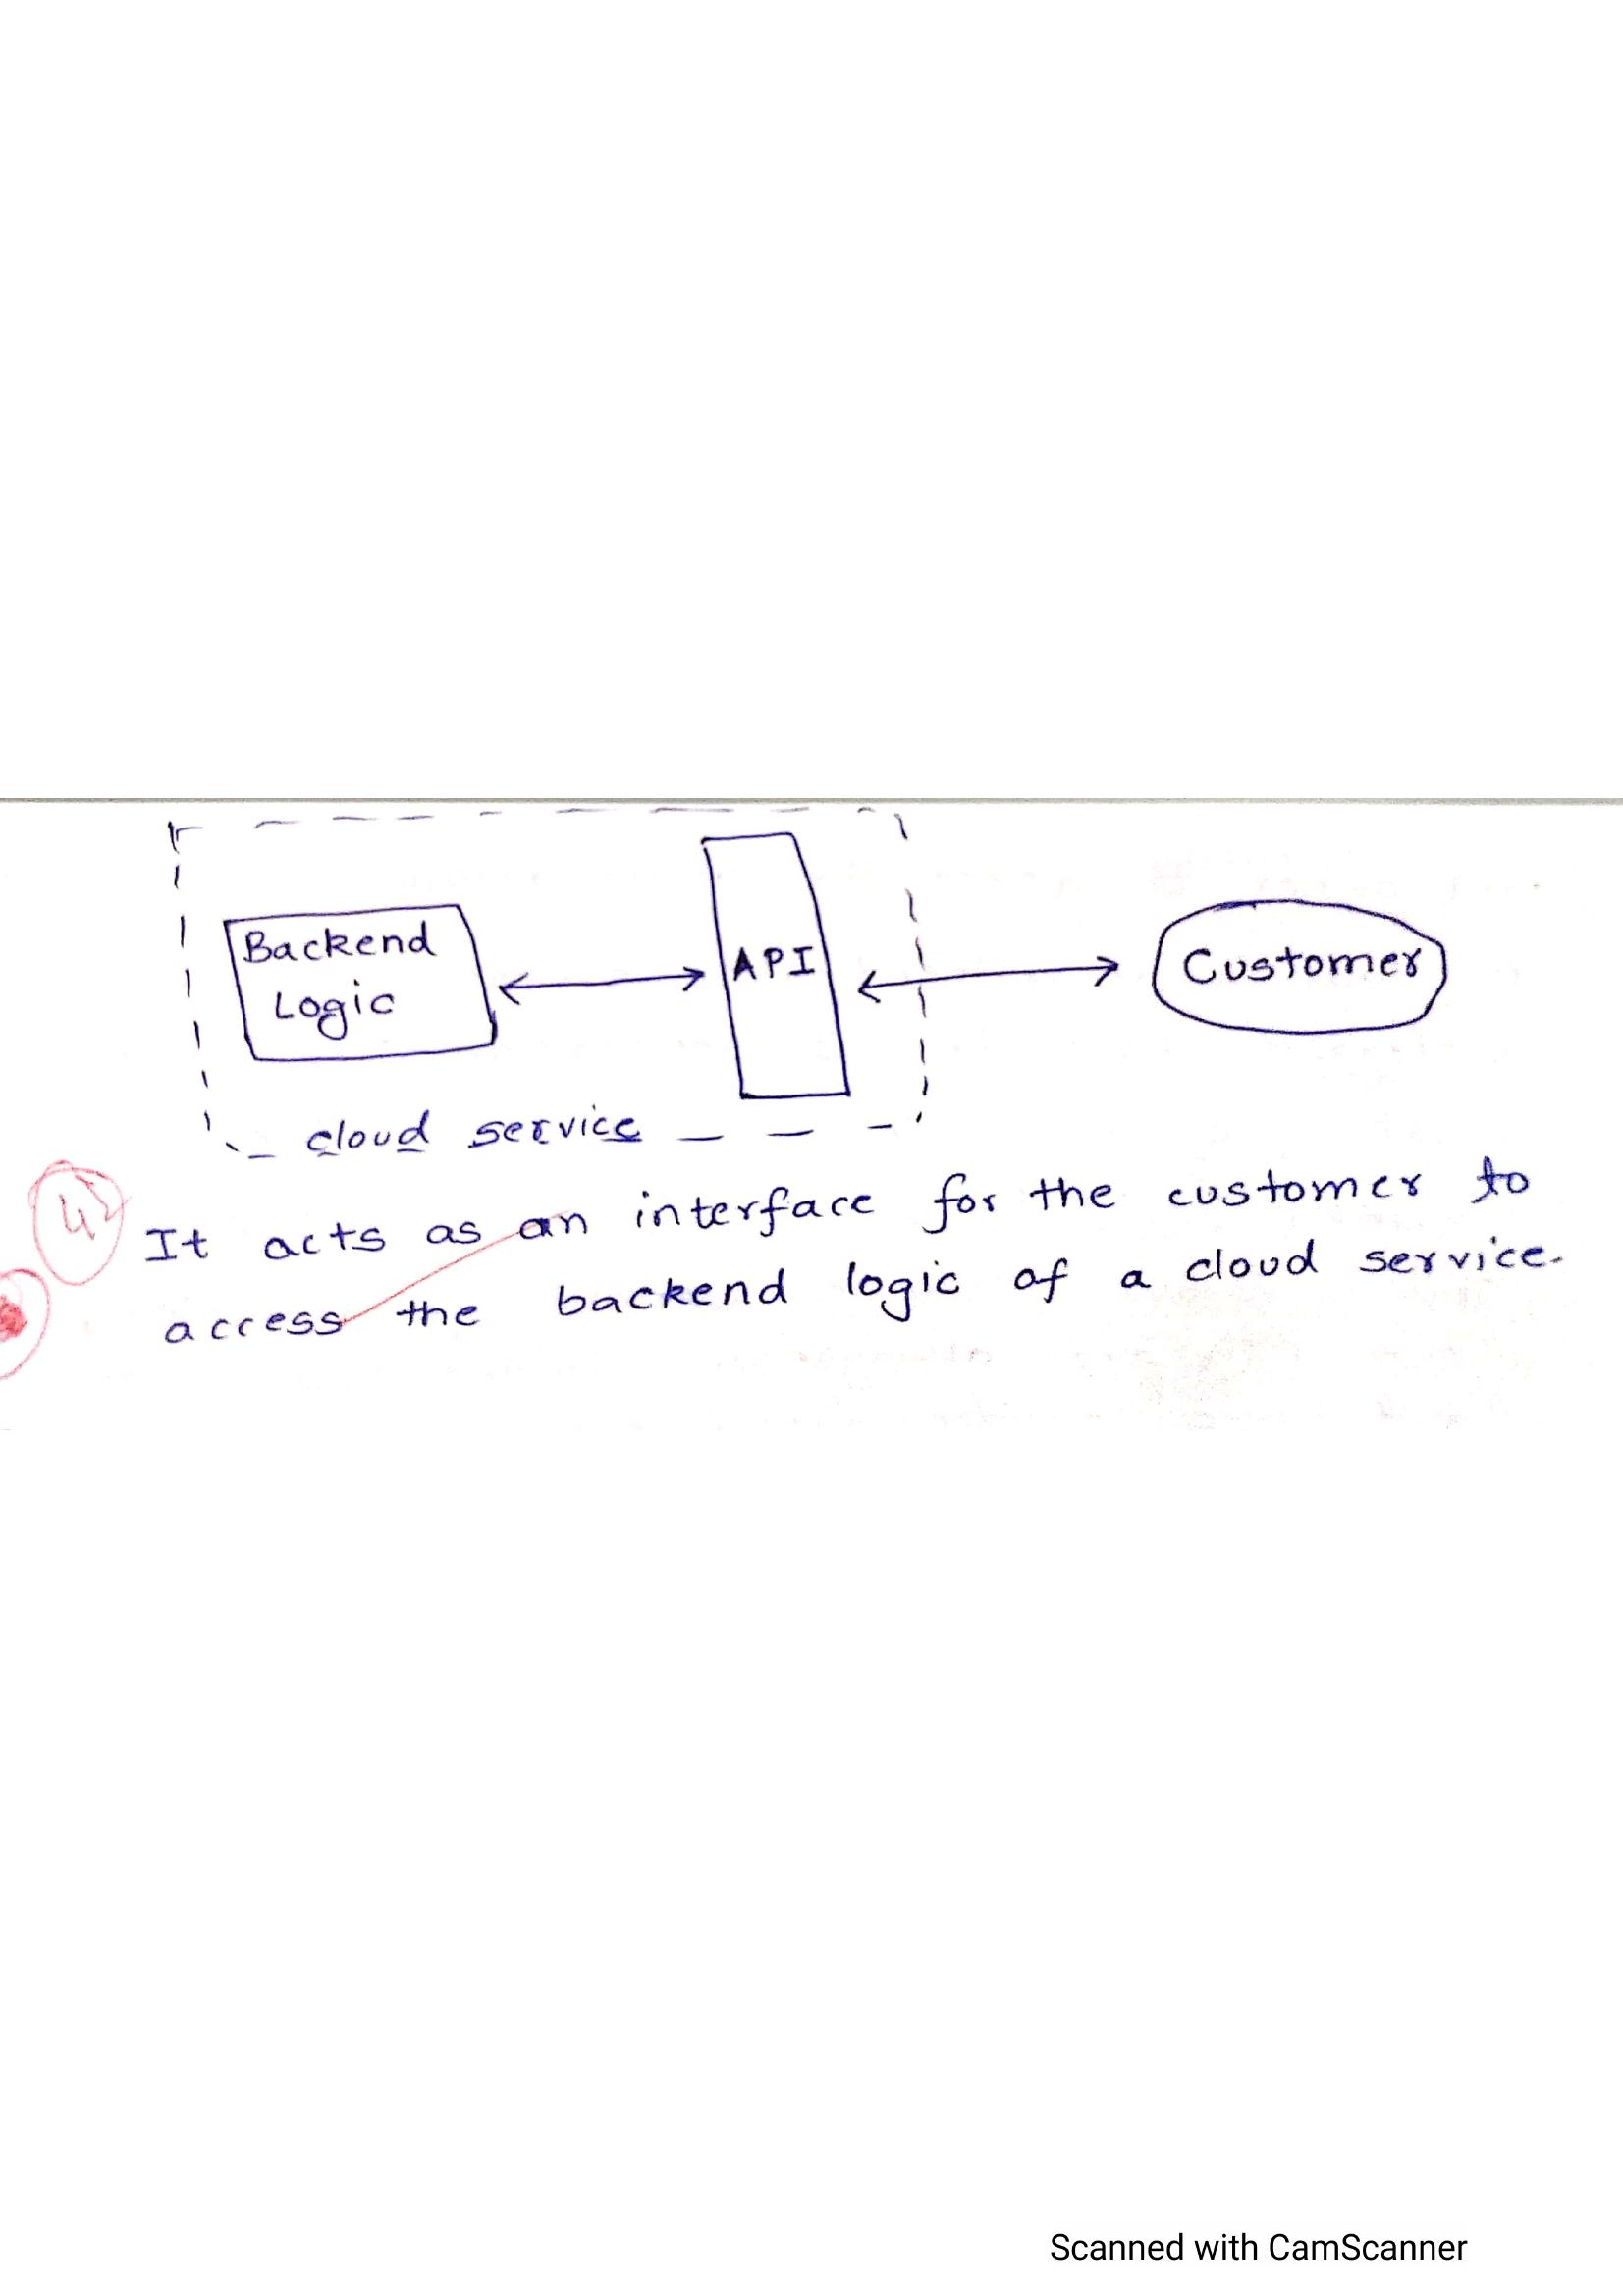 Backend
Logic
API
Customer
cloud service
It acts as an interface for the customer to
access the backend logic of a cloud service.
Scanned with CamScanner